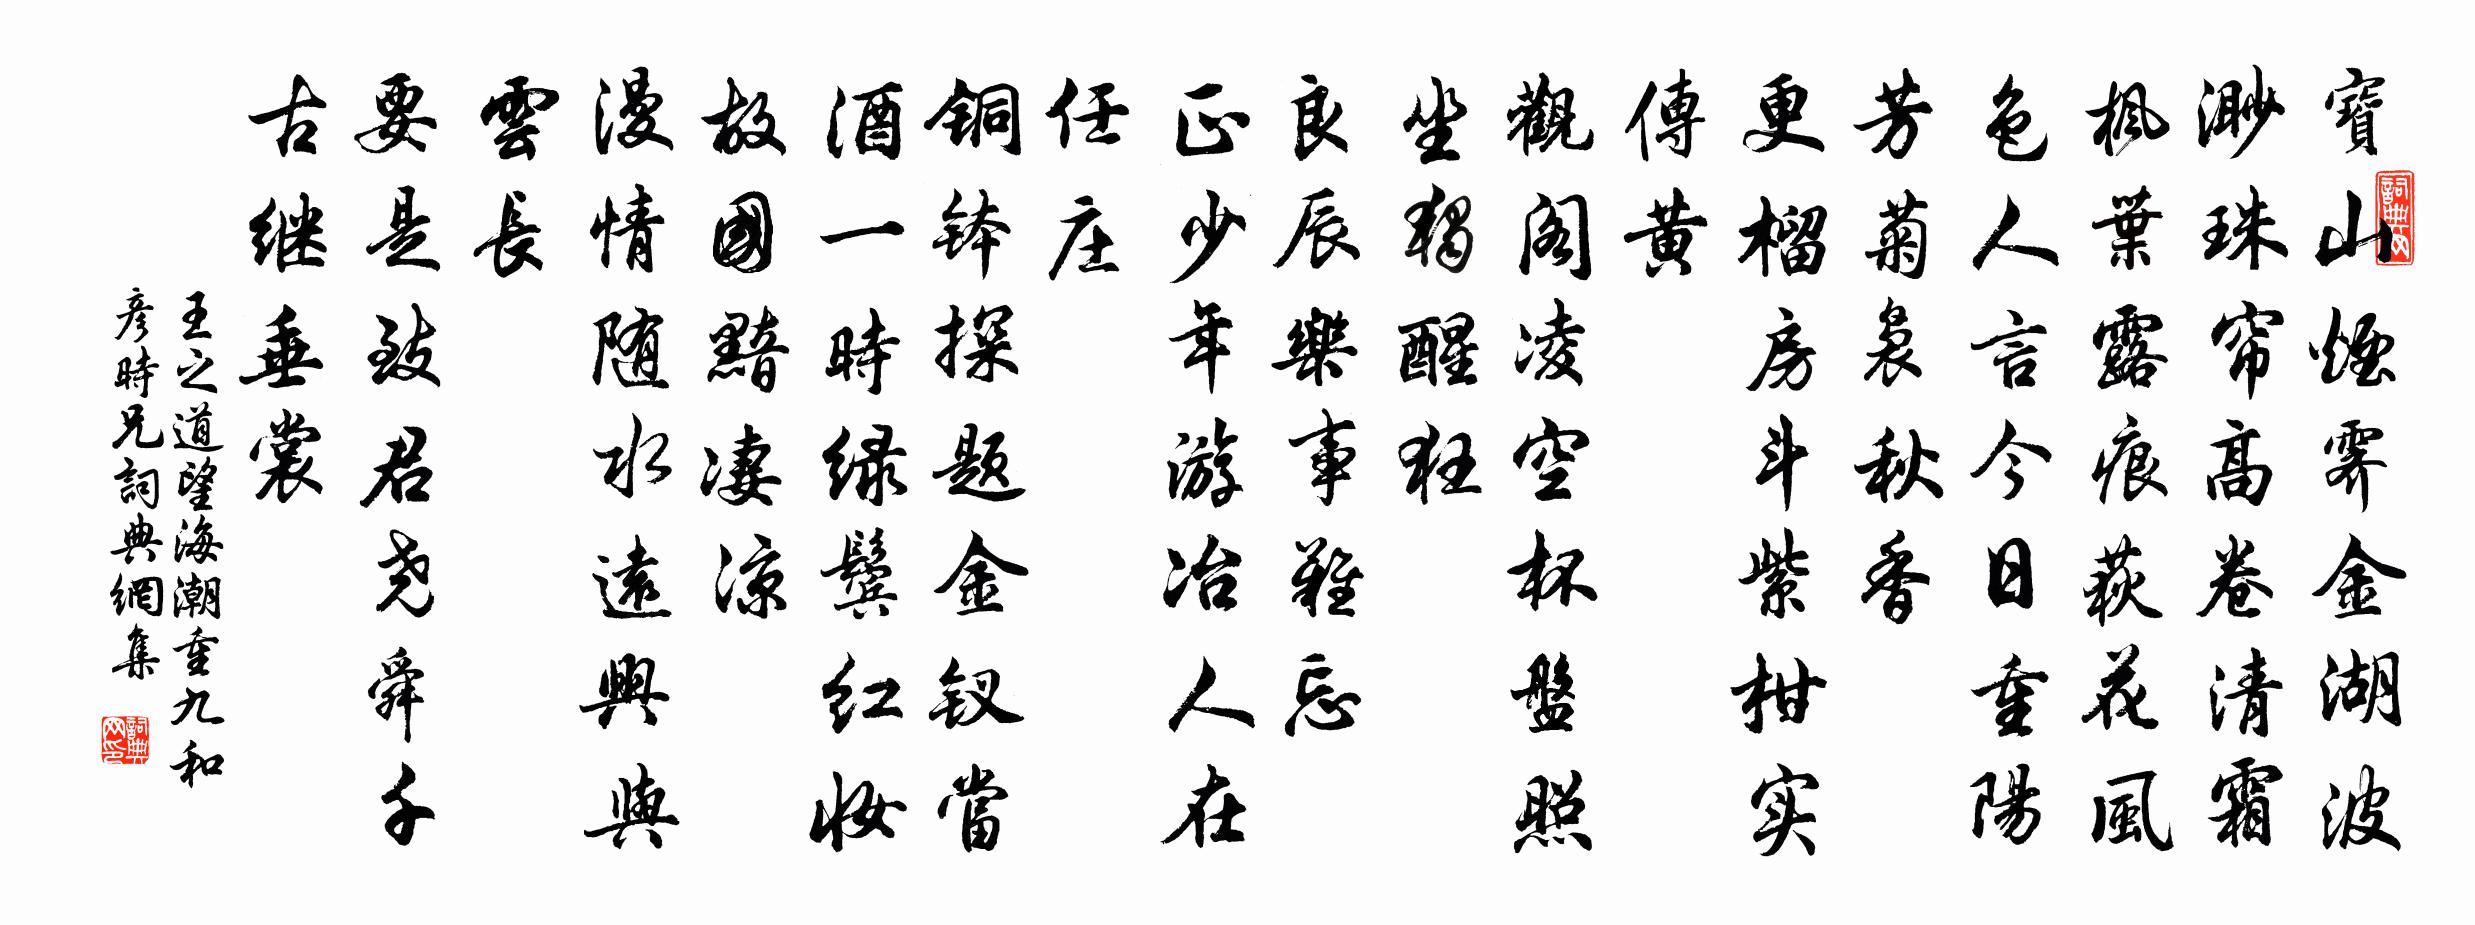 寶山煙霽金湖波
渺珠帘高卷清霜
楓葉露痕荻花風
色人言今日重陽
芳菊裊秋香
更榴房斗紫柑实
傳黄
觀閣凌空杯盤照
坐獨醒狂
良辰樂事難忘
正少年游冶人在
任庄
銅钵探题金钗當
酒一時绿鬓红妆
故國黯凄凉
漫情随水遠興與
雲長
要是致君尧舜千
古继垂裳
王之道望海潮重九和
彦時兄詞典網集